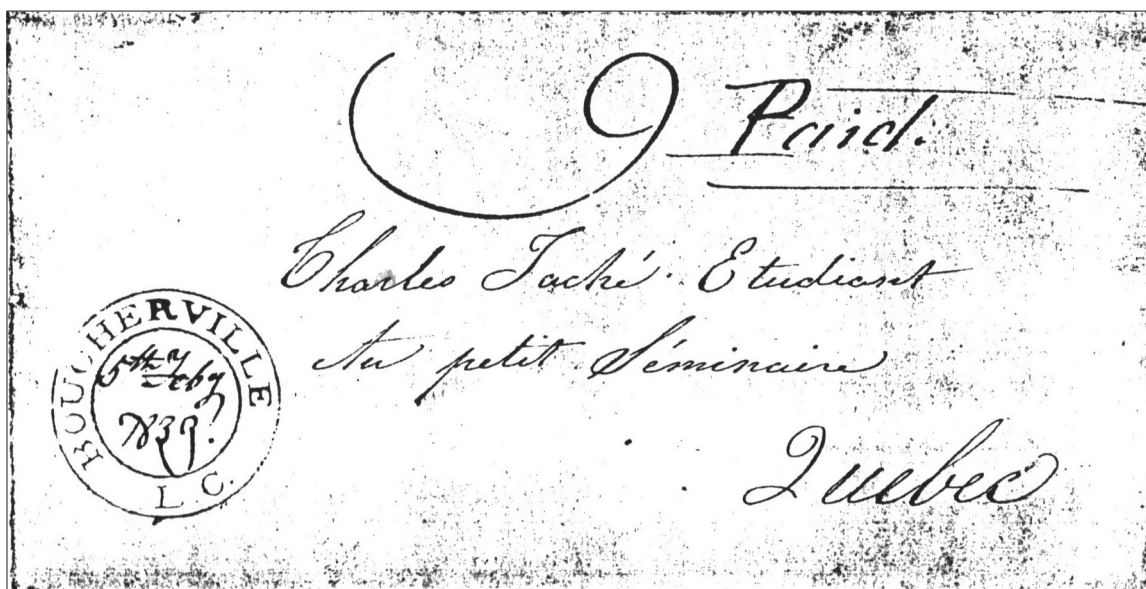 9 Paid.
Charles Taché. Etudiant
Au petit Séminaire
Quebec
BOUCHERVILLE
5th Feby
1839.
L.C.